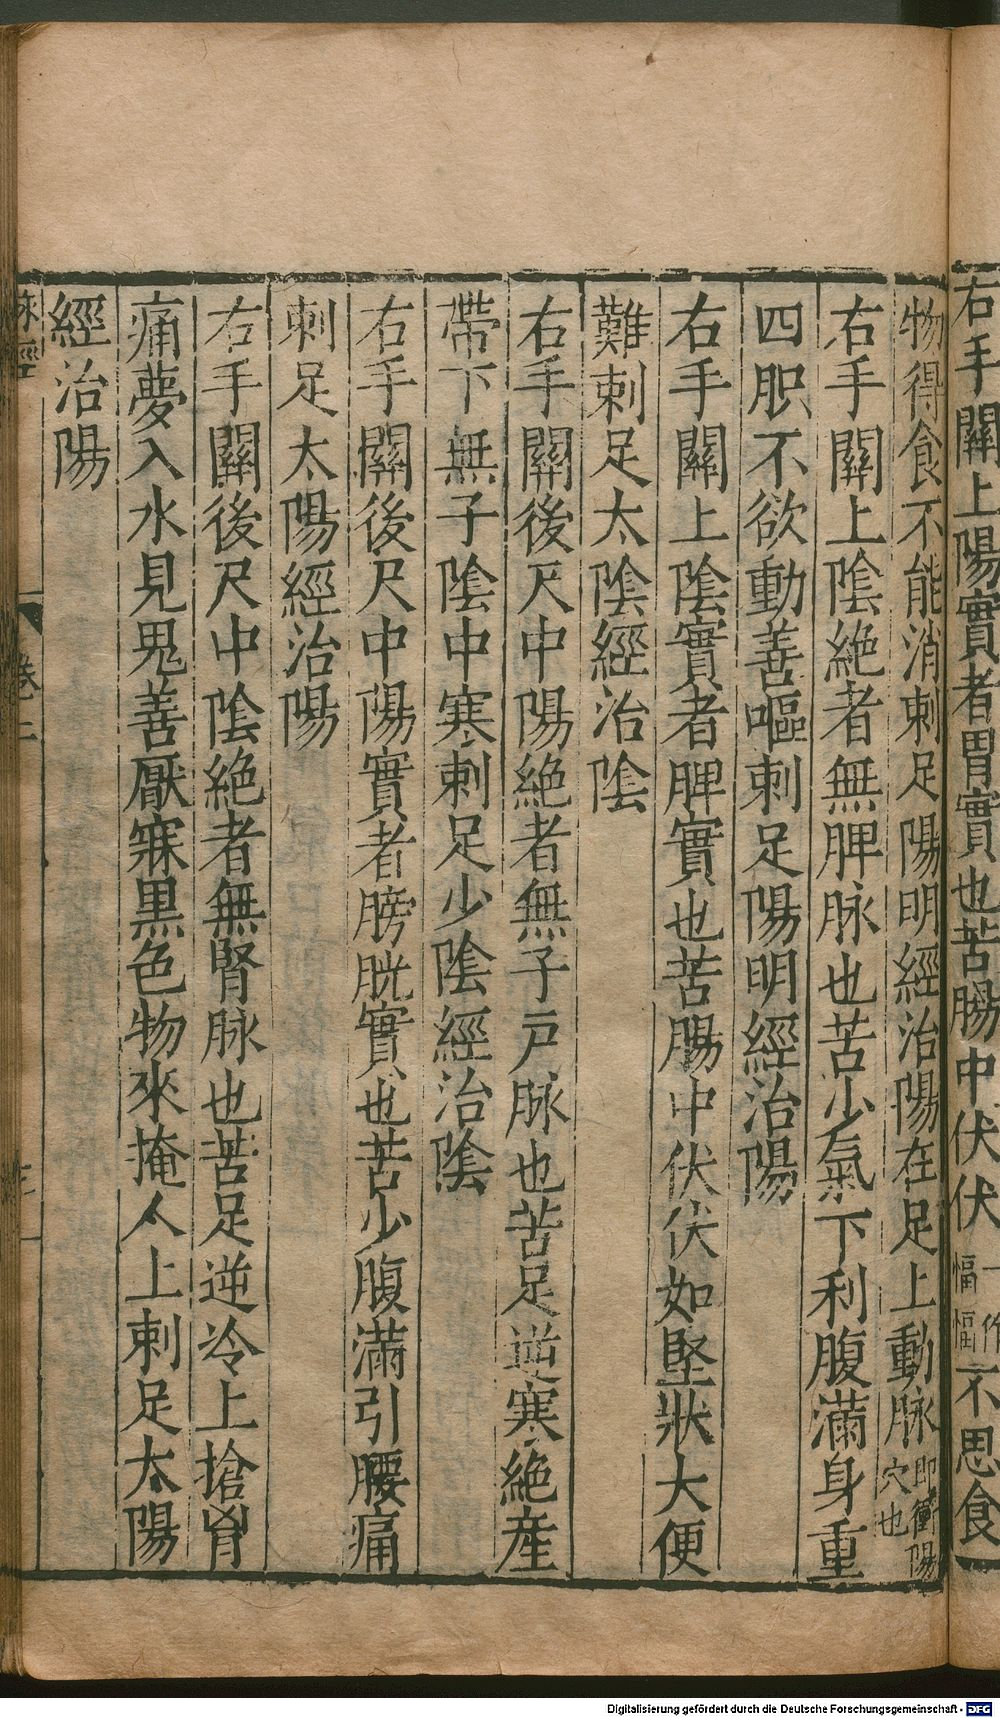 右手關上陽實者胃實也苦腸中伏伏一作愊愊不思食
物得食不能消刺足陽明經治陽在足上動脉即衝陽穴也
右手關上陰絶者無脾脉也苦少氣下利腹滿身重
四肢不欲動善嘔刺足陽明經治陽
右手關上陰實者脾實也苦腸中伏伏如堅狀大便
難刺足太陰經治陰
右手關後尺中陽絶者無子戸脉也苦足逆寒絶産
帶下無子陰中寒刺足少陰經治陰
右手關後尺中陽實者膀胱實也苦少腹滿引腰痛
刺足太陽經治陽
右手關後尺中陰絶者無腎脉也苦足逆冷上搶胷
痛夢入水見鬼善厭寐黒色物來掩人上刺足太陽
經治陽
脉經 卷二
Digitalisierung gefördert durch die Deutsche Forschungsgemeinschaft - DFG